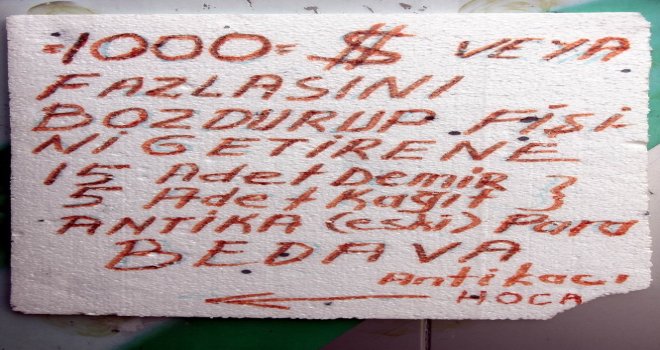 =1000= $ VEYA
FAZLASINI
BOZDURUP Fişi-
Ni GETIRENE
15 Adet Demir
5 Adet Kağıt }
ANTiKA (eski) Para
BEDAVA
Antikacı
HOCA